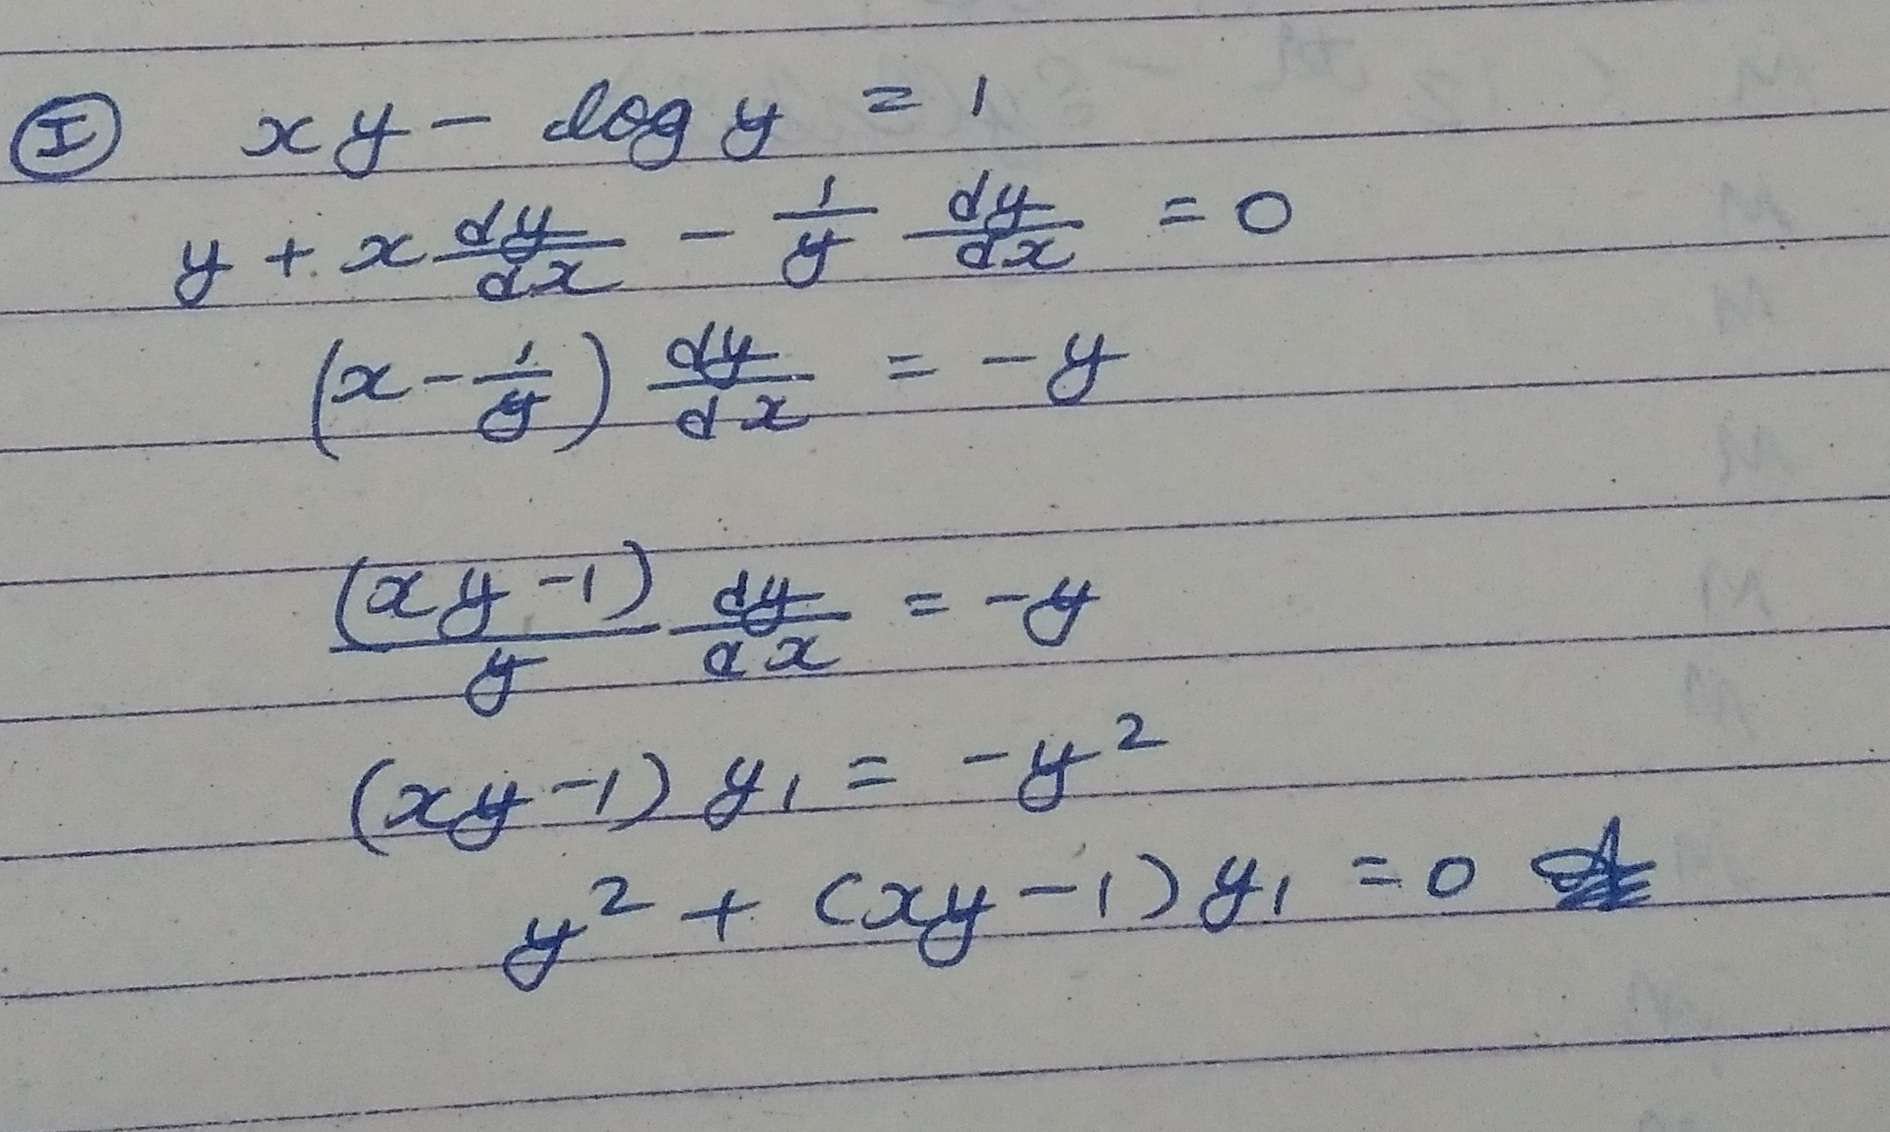 Ⓘ xy - log y = 1
y + x dy/dx - 1/y dy/dx = 0
(x - 1/y) dy/dx = -y
(xy - 1)/y dy/dx = -y
(xy - 1) y₁ = -y²
y² + (xy - 1) y₁ = 0